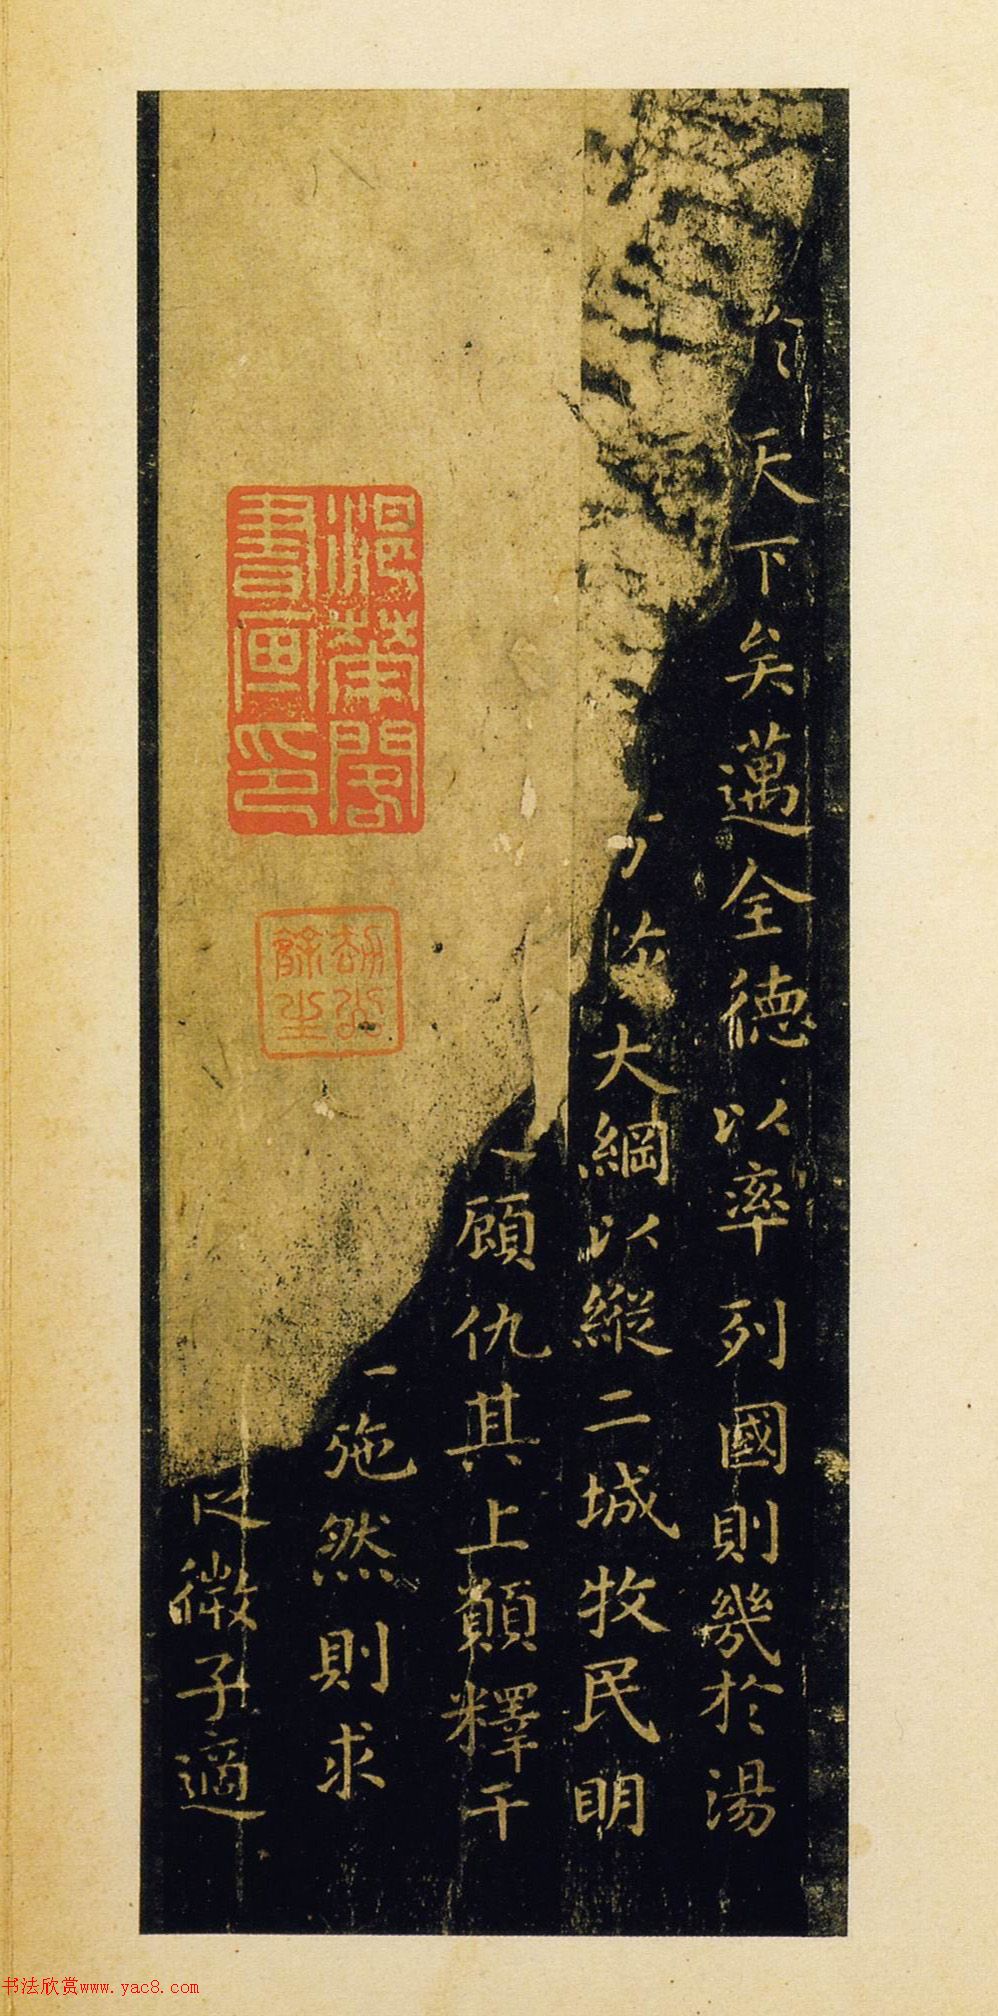 天下矣邁全德以率列國則幾於湯
大綱以縱二城牧民明
顧仇其上願釋干
施然則求
微子適
書畫印
劫灰
餘生
书法欣赏www.yac8.com